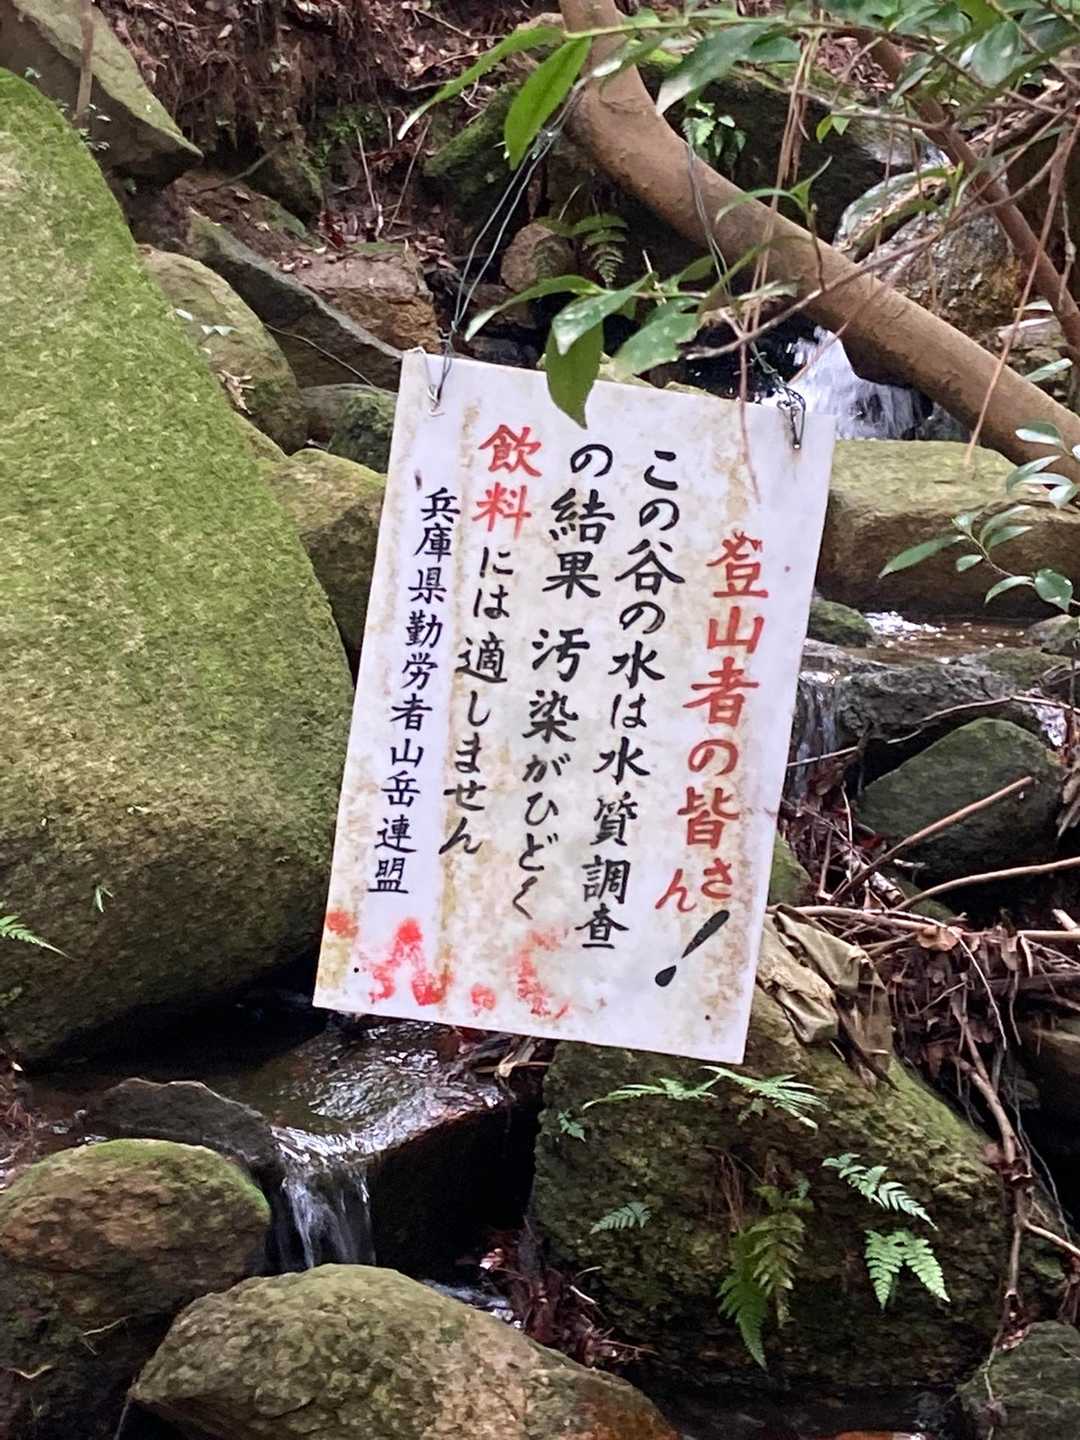 登山者の皆さん!
この谷の水は水質調査
の結果 汚染がひどく
飲料には適しません
兵庫県勤労者山岳連盟